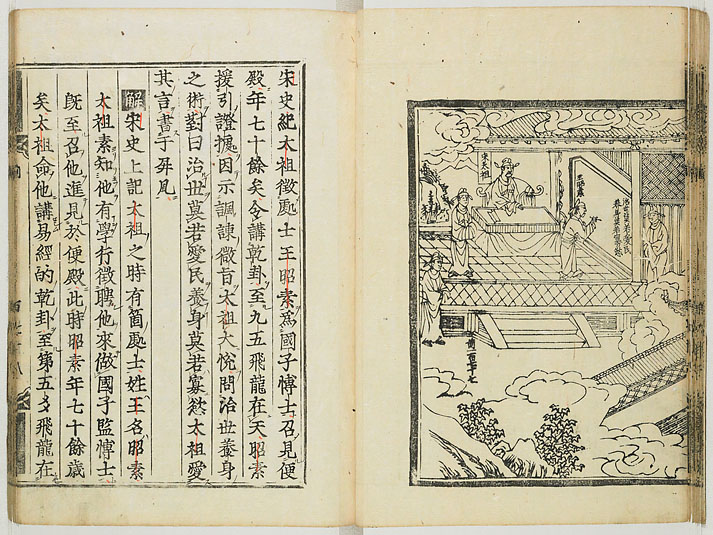 治世莫若愛民
養身莫若寡慾
王昭素
宋太祖
宋史紀太祖徵處士王昭素爲國子愽士召見便
殿年七十餘矣令講乾卦至九五飛龍在天昭素
援引證據因示諷諫微旨太祖大悅問治世養身
之術對曰治世莫若愛民養身莫若寡慾太祖愛
其言書于屏几
解宋史上記太祖之時有箇處士姓王名昭素
太祖素知他有學行徵聘他來做國子監愽士
旣至召他進見於便殿此時昭素年七十餘歲
矣太祖命他講易經的乾卦至第五爻飛龍在